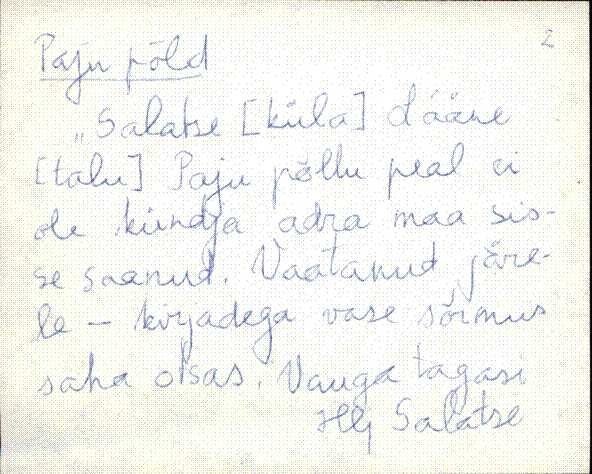 2
Paju põld
„Salatse [küla] Lääne
[talu] Paju põllu peal ei
ole kündja adra maa sis-
se saanud. Vaatanud järe-
le – kirjadega vase sõrmus
saha otsas. Vauga tagasi
Salatse